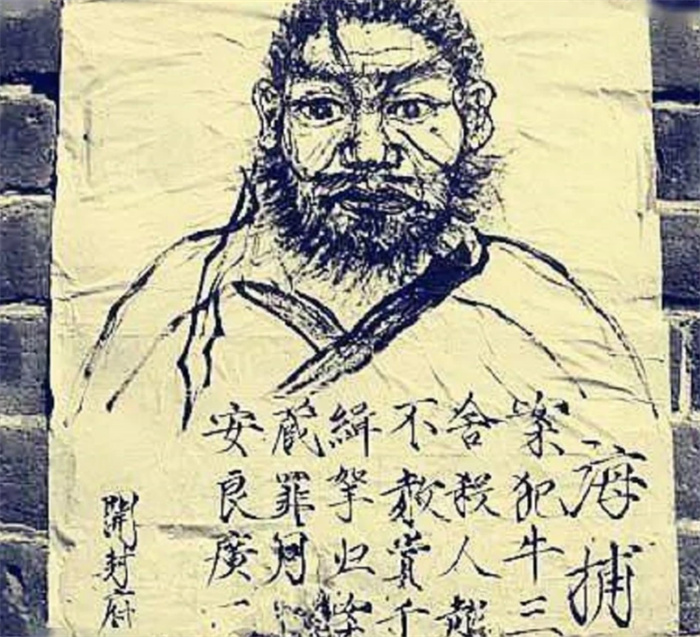 海捕
案犯牛三
舍殺人越
不赦賞千
緝拏归案
蔵罪
安良廣
開封府